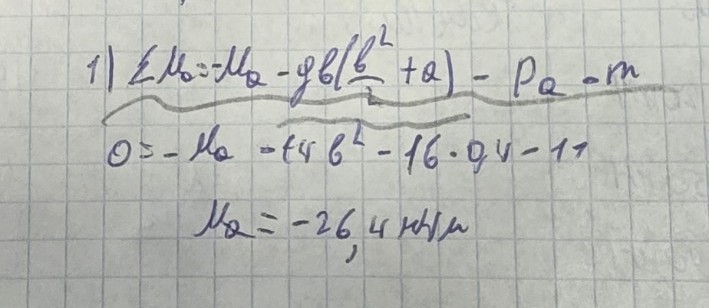 1) ΣMa = -Ma - qb(b²/2 + a) - Pa - m
0 = - Ma - 14 b² - 16 · 0,4 - 11
Ma = -26,4 кН/м